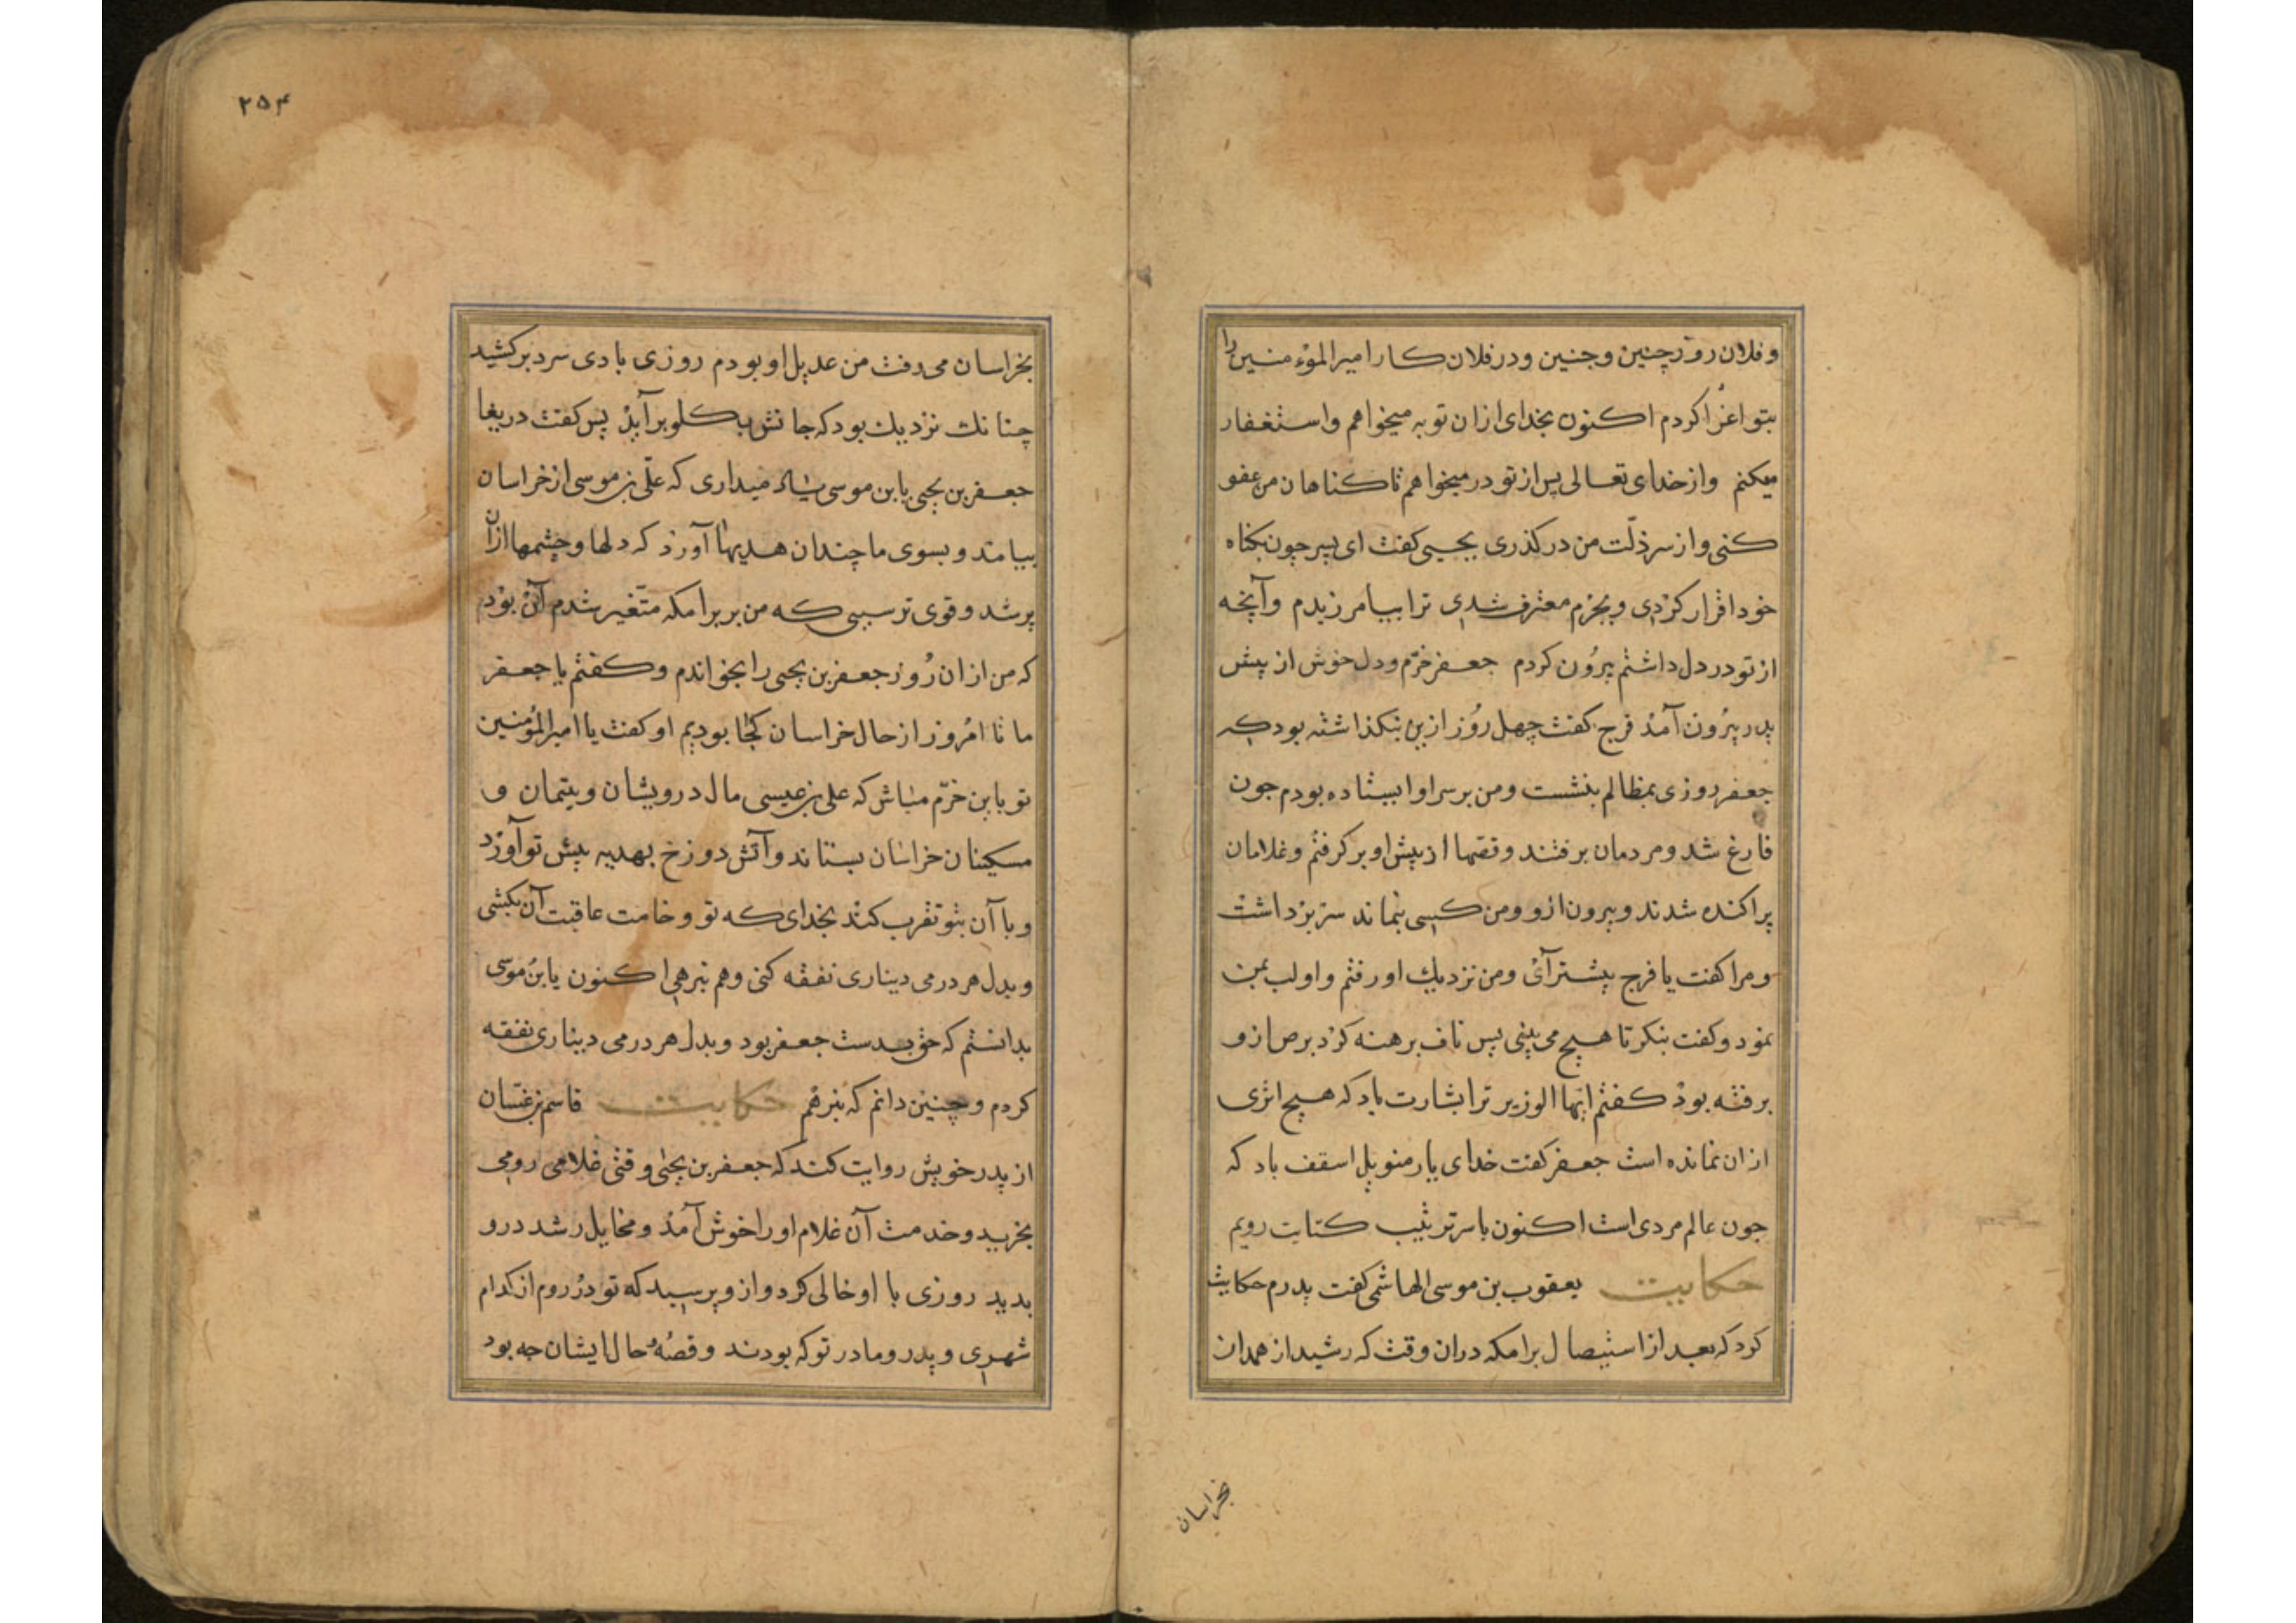 و فلان روز چنین و جنین و در فلان کار امیرالموءمنین را
بتو اغرا کردم اکنون بخدای ازان توبه میخواهم و استغفار
میکنم و از خدای تعالی پس از تو در میخواهم تا کناهان من عفو
کنی و از سر ذلّت من در کذری یحیی کفت ای پسر جون بکناه
خود اقرار کردی و بجرم معترف شدی ترا بیامرزیدم و آنچه
از تو در دل داشتم بیرون کردم جعفر خرّم و دل خوش از پیش
پدر بیرون آمذ فرج کفت چهل روز ازین بنکذاشته بود که
جعفر روزی بمظالم بنشست و من بر سر او ایستاده بودم جون
فارغ شد و مردمان برفتند و قصّها از پیش او بر کرفتم و غلامان
پراکنده شدند و بیرون ازو و من کسی بنماند سر بر داشت
و مرا کفت یا فرج پیشتر آی و من نزدیك او رفتم و او لب بمن
نمود و کفت بنکر تا هیچ می بینی پس ناف برهنه کرد برص ازو
برفته بوذ کفتم ایها الوزیر ترا بشارت باد که هیچ اثری
ازان نمانده است جعفر کفت خدای یار منویل اسقف باد که
جون عالم مردی است اکنون با سر ترتیب کتابت رویم
حکایت یعقوب بن موسی الهاشمی کفت پدرم حکایت
کرد که بعد از استیصال برامکه دران وقت که رشید از همدان
بخراسان
۲۵۴
بخراسان می رفت من عدیل او بودم روزی بادی سرد بر کشید
چنانك نزدیك بود که جانش بکلو بر آید پس کفت دریغا
جعفر بن یحیی یا بن موسی یاد میداری که علّی بن موسی از خراسان
بیامد و بسوی ما چندان هدیها آورد که دلها و چشمها ازان
پر شد و قوی تر سببی که من بر برامکه متغیر شدم آن بود
که من ازان روز جعفر بن یحیی را بخواندم و کفتم یا جعفر
ما تا امروز از حال خراسان کجا بودیم او کفت یا امیرالمؤمنین
تو باین خرّم مباش که علی بن عیسی مال درویشان و یتیمان و
مسکینان خراسان بستاند و آتش دوزخ بهدیه پیش تو آورد
و با آن بتو تقرب کند بخدای که تو وخامت عاقبت آن بکشی
و بدل هر درمی دیناری نفقه کنی و هم نبرهی اکنون یا بن موسی
بدانستم که حق بدست جعفر بود و بدل هر درمی دیناری نفقه
کردم و چنین دانم که نبرهم حکایت قاسم بن غسّان
از پدر خویش روایت کند که جعفر بن یحیی وقتی غلامی رومی
بخرید و خدمت آن غلام او را خوش آمذ و مخایل رشد درو
بدید روزی با او خالی کرد و ازو پرسید که تو در روم از کدام
شهری و پدر و مادر تو که بودند و قصّهٔ حال ایشان جه بود